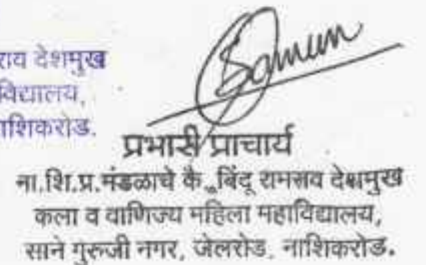 राव देशमुख
विद्यालय,
नाशिकरोड.
प्रभारी प्राचार्य
ना.शि.प्र.मंडळाचे कै. बिंदू रामराव देशमुख
कला व वाणिज्य महिला महाविद्यालय,
साने गुरुजी नगर, जेलरोड, नाशिकरोड.